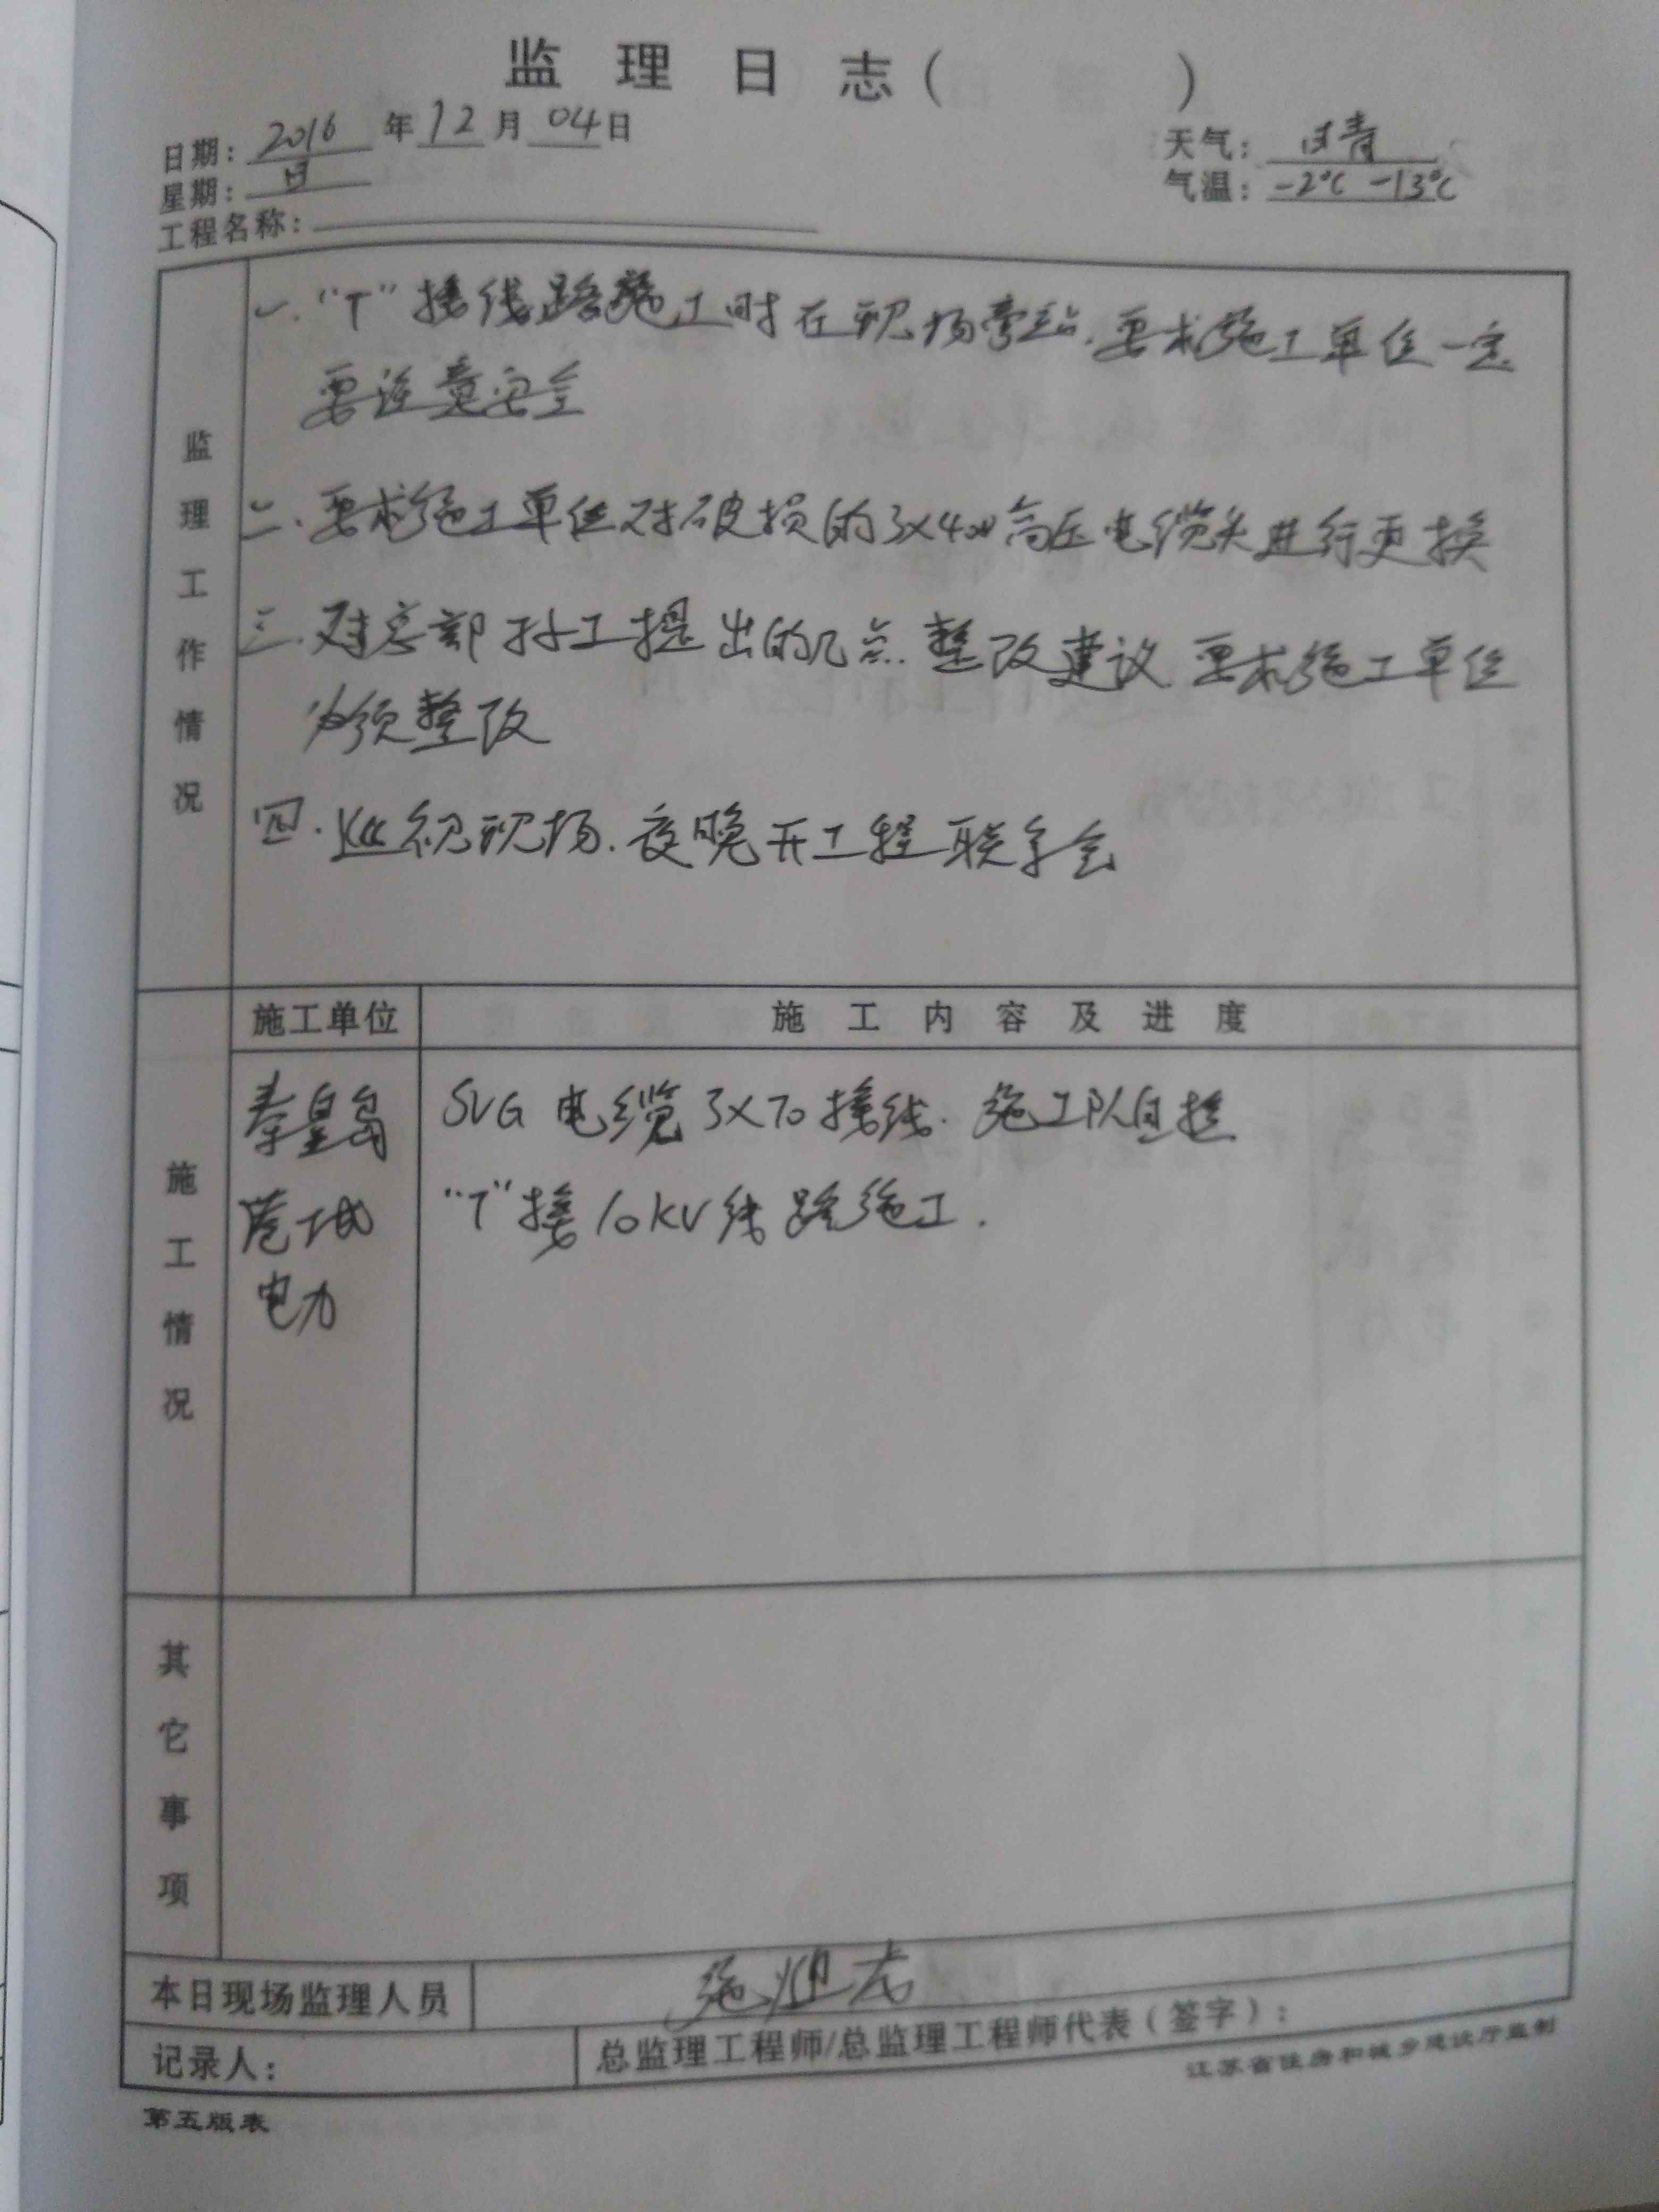 监理日志（ ）
日期：2016年12月04日
天气：晴
星期：日
气温：-2℃ -13℃
工程名称：
监理工作情况
一、“T”接线路施工时在现场旁站，要求施工单位一定
要注意安全
二、要求施工单位对破损的3×400高压电缆头进行更换
三、对总部孙工提出的几点整改建议 要求施工单位
必须整改
四、巡视现场，夜晚开工程联系会
施工情况
施工单位
施工内容及进度
秦皇岛
港城
电力
SVG 电缆 3×70 接线. 施工队自检
“T”接 10KV 线路施工.
其它事项
本日现场监理人员
施迎
记录人：
总监理工程师/总监理工程师代表（签字）：
江苏省住房和城乡建设厅监制
第五版表